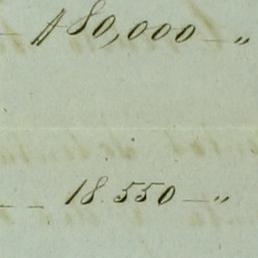 — $80,000 — „
— — 18.550 — „